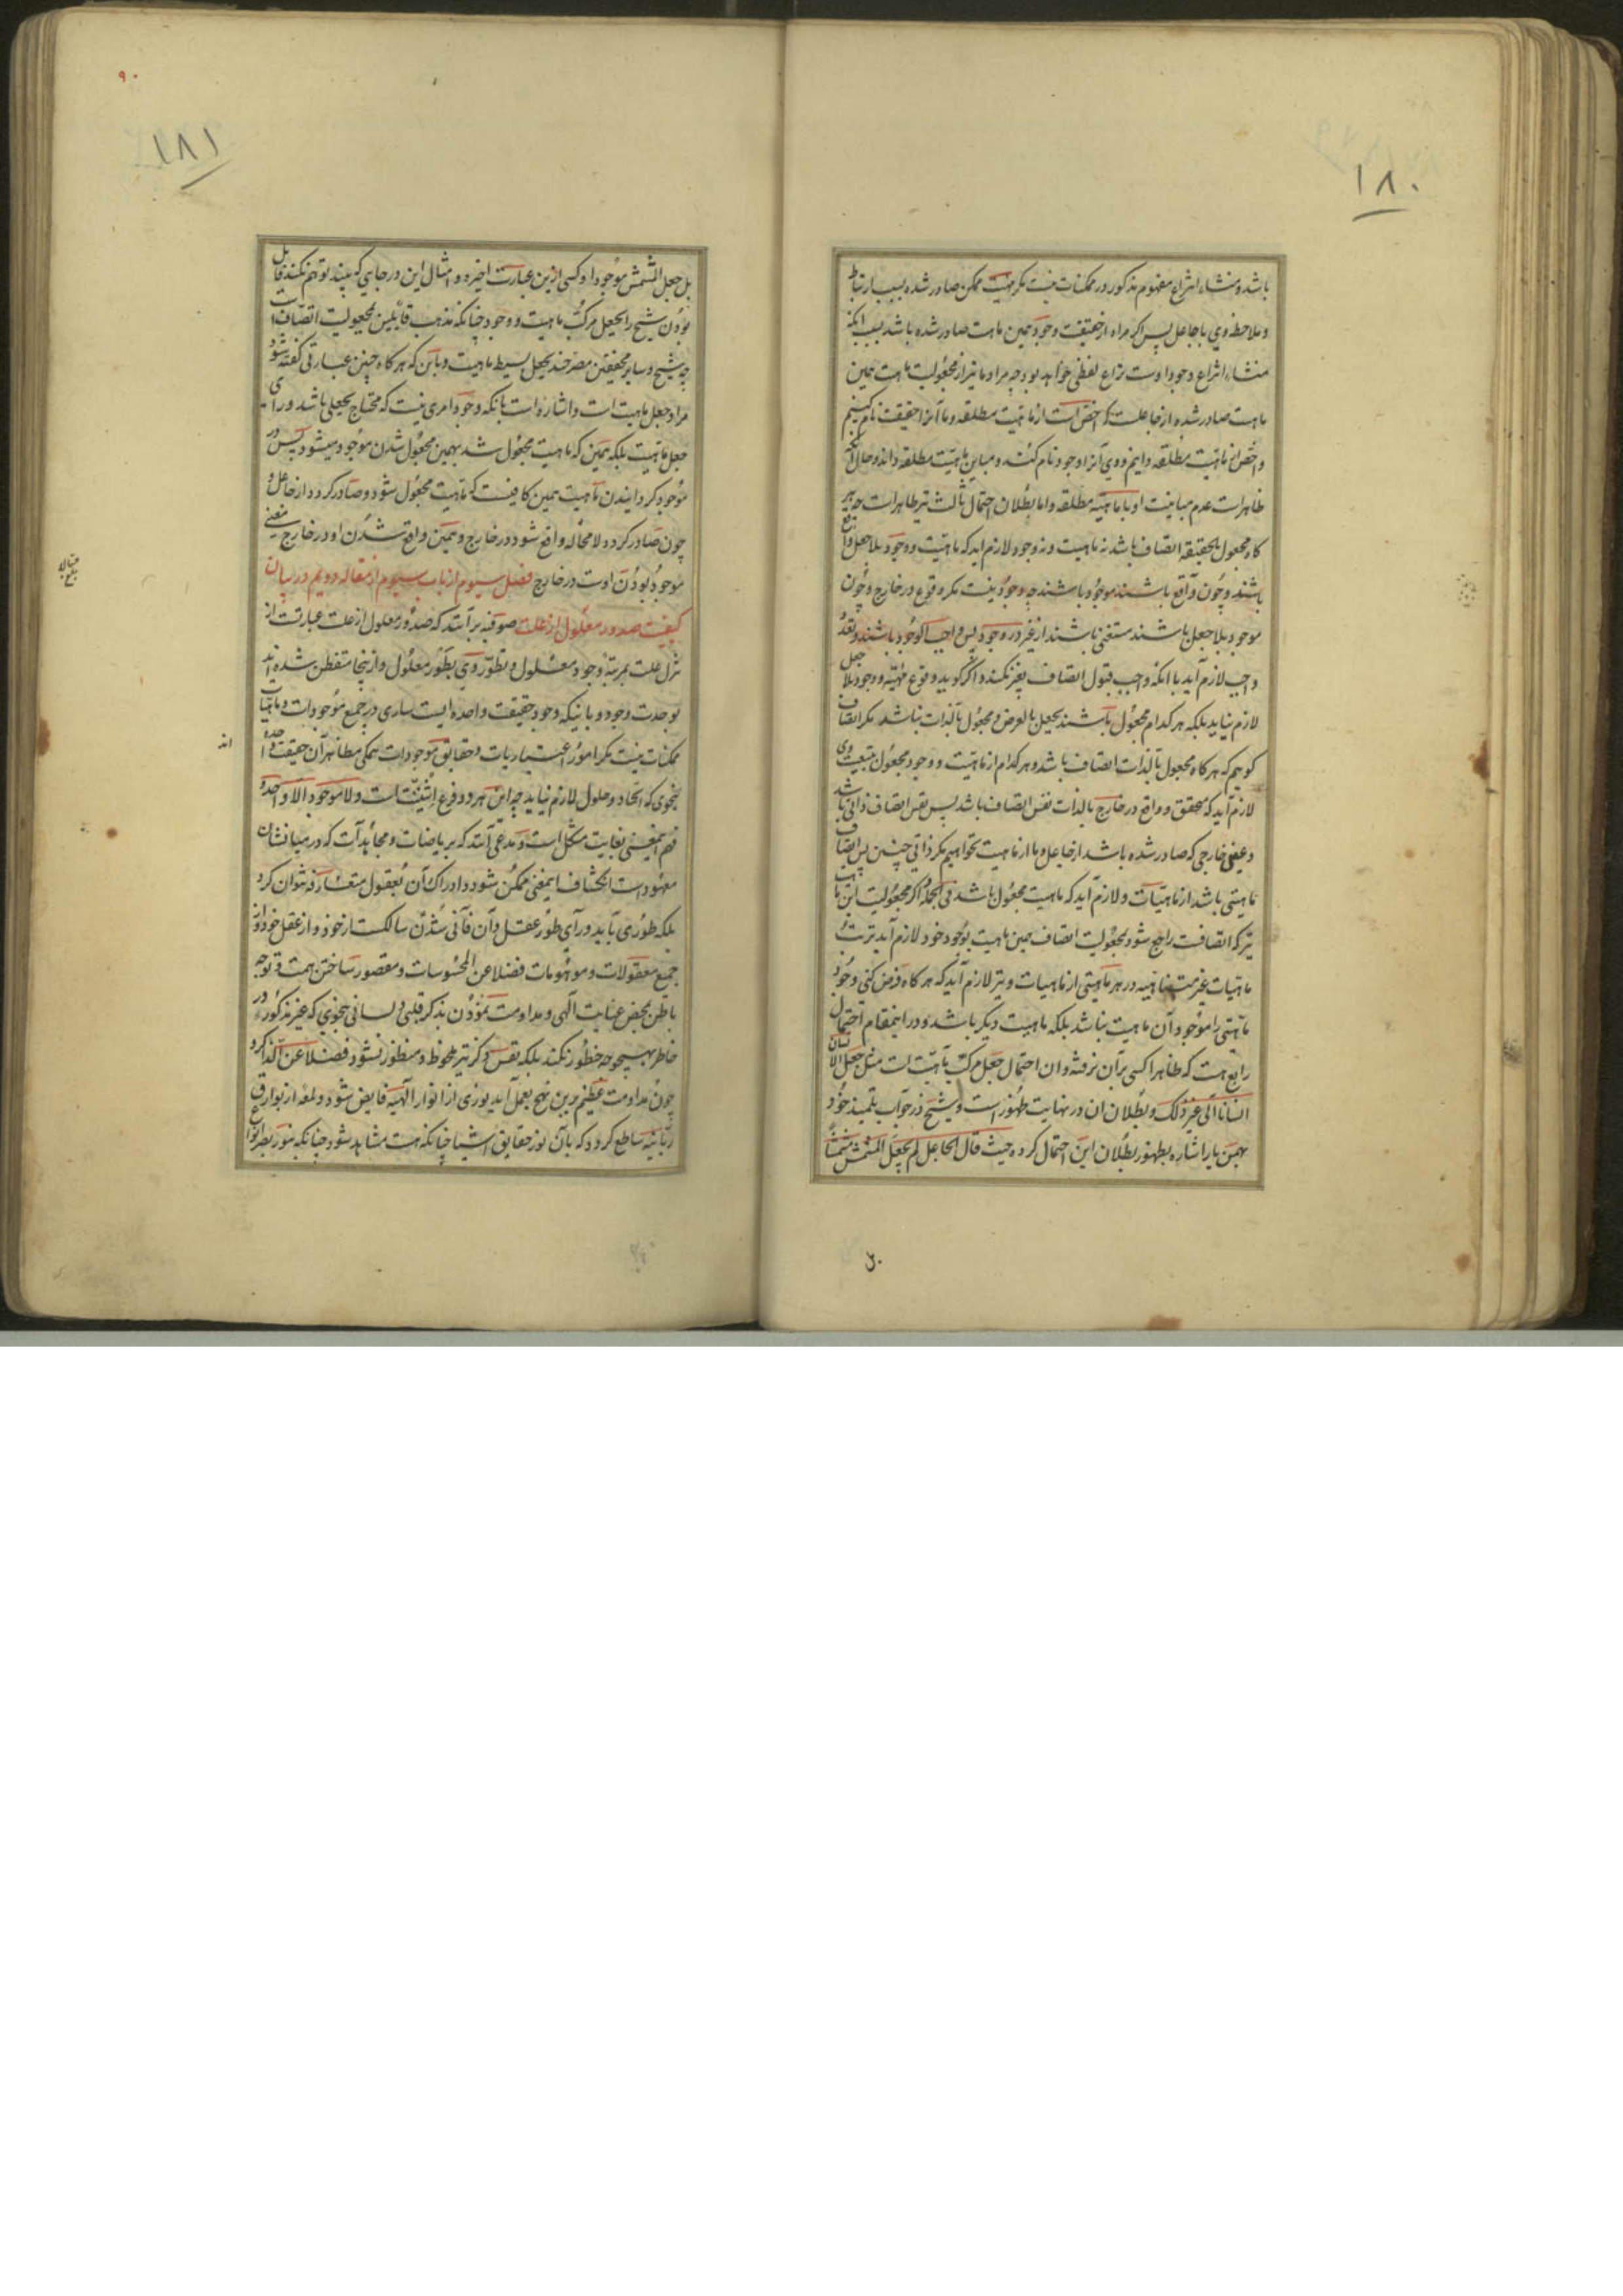 ١٨٠
باشد و منشاء انتزاع مفهوم مذکور در ممکنات نیست مکر مهیت ممکن صادر شده بسبب ارتباط
و ملاحظه وی با جاعل پس اکر مراد از حقیقت وجود همین ماهیت صادر شده باشد بسبب انکه
منشاء انتزاع وجود اوست نزاع لفظی خواهد بود چه مراد ما نیز از مجعولیت ماهیت همین
ماهیت صادر شده از جاعلست که اخص است از ماهیت مطلقه و ما آنرا حقیقت نام کنیم
و اخص از ماهیت مطلقه دانیم و وی آنرا وجود نام کند و مباین ماهیت مطلقه داند و حال آنکه
ظاهراست عدم مباینت او با ماهیة مطلقه و اما بطلان احتمال ثالث نیز ظاهر است چه هر
کاه مجعول بالحقیقه اتصاف باشد نه ماهیت و نه وجود لازم اید که ماهیت و وجود بلا جعل واقع
باشند و چون واقع باشند موجود باشند چه وجود نیست مکر وقوع در خارج و چون
موجود بلا جعل باشند مستغنی باشند از غیر در وجود پس واجب الوجود باشند و تعدد
واجب لازم آید با آنکه واجب قبول اتصاف بغیر نکند و اکر کوید وقوع مهیة و وجود بلا جعل
لازم نیاید بلکه هر کدام مجعول باشند بجعل بالعرض و مجعول بالذات نباشد مکر اتصاف
کوییم که هر کاه مجعول بالذات اتصاف باشد و هر کدام از ماهیت و وجود مجعول بتبعیت وی
لازم آید که محقق و واقع در خارج بالذات نفس اتصاف باشد پس نفس اتصاف ذاتی باشد
و عینی خارجی که صادر شده باشد از جاعل و ما از ماهیت نخواهیم مکر ذاتی چنین پس اتصاف
ماهیتی باشد از ماهیات و لازم آید که ماهیت مجعول باشد فی الجمله اکر مجعولیت این ماهیت
نیز که اتصافست راجع شود بمجعولیت اتصاف همین ماهیت بوجود خود لازم آید ترتب
ماهیات غیر متناهیه در هر ماهیتی از ماهیات و نیز لازم آید که هر کاه فرض کنی وجود
ماهیتی را موجود آن ماهیت نباشد بلکه ماهیت دیکر باشد و در اینمقام احتمال
رابع هست که ظاهرا کسی بر آن نرفته و ان احتمال جعل مرکب ماهیت است مثل جعل الانسان
انسانا الی غیر ذلک و بطلان ان در نهایت ظهور است و شیخ در جواب تلمیذ خود
بهمن یار اشاره بظهور بطلان این احتمال کرده حیث قال الجاعل لم یجعل المشمش مشمشا
١٨١
بل جعل المشمش موجودا و کسی ازین عبارت اخیره و امثال این در جایی که بیند توهم نکند قایل
بودن شیخ را بجعل مرکب ماهیت و وجود چنانکه مذهب قایلین بمجعولیت اتصاف است
چه شیخ و سایر محققین مصرحند بجعل بسیط ماهیت و باین که هر کاه چنین عبارتی کفته شود
مراد جعل ماهیت است و اشاره است بانکه وجود امری نیست که محتاج بجعلی باشد ورای
جعل ماهیت بلکه همین که ماهیت مجعول شد بهمین مجعول شدن موجود میشود پس در
موجود کردانیدن ماهیت همین کافیست که ماهیت مجعول شود و صادر کردد از جاعل و
چون صادر کردد لا محاله واقع شود در خارج و همین واقع شدن او در خارج معنی
موجود بودن اوست در خارج فصل سیوم از باب سیوم از مقاله دویم در بیان
کیفیت صدور معلول از علت صوفیه بر آنند که صدور معلول از علت عبارتست از
تنزل علت بمرتبه وجود معلول و تطور وی بطور معلول و از ینجا متفطن شده اند
بوحدت وجود و باینکه وجود حقیقت واحده ایست ساری در جمیع موجودات و ماهیات
ممکنات نیست مکر امور اعتباریات و حقایق موجودات همکی مظاهر آن حقیقت واحده
بنحوی که اتحاد و حلول لازم نیاید چه این هر دو فرع اثنینیت است و لا موجود الا واحد و
فهم اینمعنی بغایت مشکل است و مدعی آنند که بریاضات و مجاهدات که در میانشان
معهود است انکشاف اینمعنی ممکن شود و ادراک آن بعقول متعارفه نتوان کرد
بلکه طوری باید ورای طور عقل و آن فانی شدن سالکست از خود و از عقل خود و از
جمیع معقولات و موهومات فضلا عن المحسوسات و مقصور ساختن همت و توجه
باطن بمحض عنایت الهی و مداومت نمودن بذکر قلبی و لسانی بنحوی که غیر مذکور در
خاطر بهیچوجه خطور نکند بلکه نفس ذکر نیز ملحوظ و منظور نشود فضلا عن الذاکر و
چون مداومت عظیم برین نهج بعمل آید نوری از انوار الهیه فایض شود و لمعه از بوارق
ربانیه ساطع کردد که بآن نور حقایق اشیا چنانکه هست مشاهد شود چنانکه بنور بصر انواع